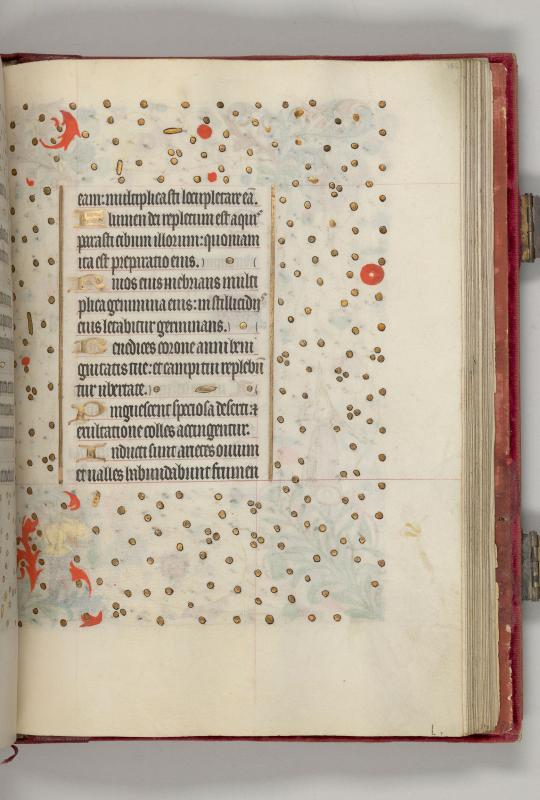 eam: multiplicasti locupletare eā.
Flumen dei repletum est aquis
parasti cibum illorum: quoniam
ita est preparatio eius.
Riuos eius inebrians multi
plica genimina eius: in stillicidijs
eius letabitur germinans.
Benedices corone anni beni
gnitatis tue: et campi tui replebūt
tur ubertate.
Pinguescent speciosa deserti: ⁊
exultatione colles accingentur.
Induti sunt arietes ouium
et ualles habundabunt frumen
L.